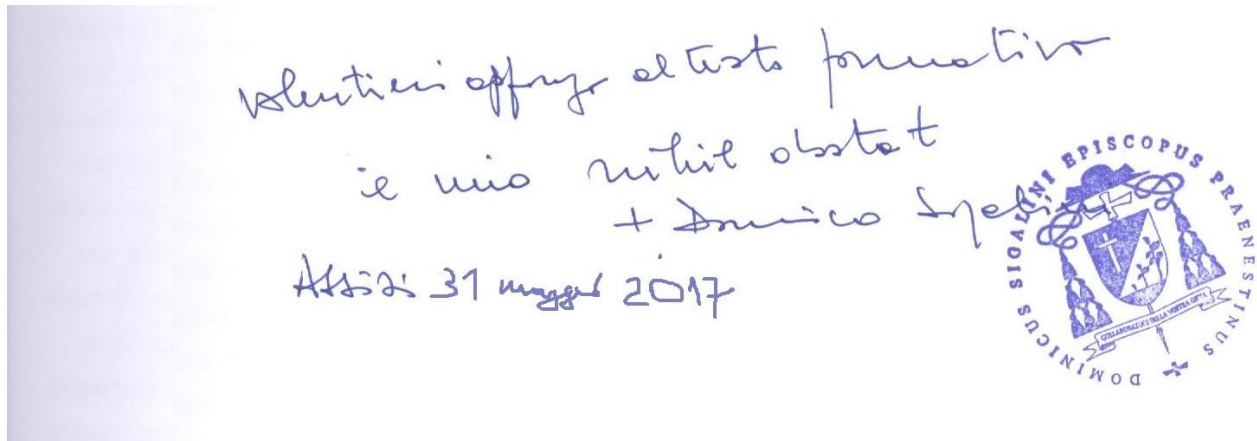 volentieri appongo al testo formativo
il mio nihil obstat
+ Domenico Sigalini
Assisi 31 maggio 2017
DOMINICUS SIGALINI EPISCOPUS PRAENESTINUS
COLLABORATORI DELLA VOSTRA GIOIA